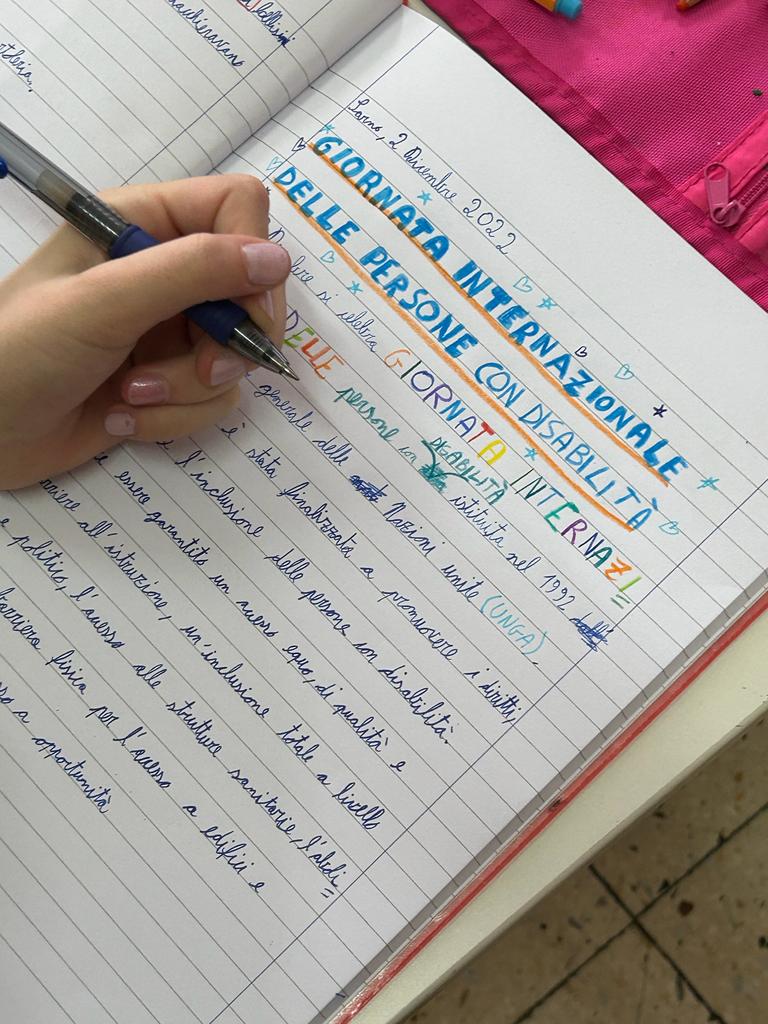 bellissi
macchieravano
rtderia.
Sarno, 2 Dicembre 2022
GIORNATA INTERNAZIONALE
DELLE PERSONE CON DISABILITÀ
si celebra GIORNATA INTERNAZI=
DELLE persone con DISABILITÀ istituita nel 1992
generale delle Nazioni unite (UNGA)
è stata finalizzata a promuovere i diritti,
e l'inclusione delle persone con disabilità.
e essere garantito un acesso equo, di qualità e
all'istruzione, un'inclusione totale a livello
e politico, l'acesso alle strutture sanitarie, l'abdi=
barriera fisica per l'acesso a edifici e
a opportunità